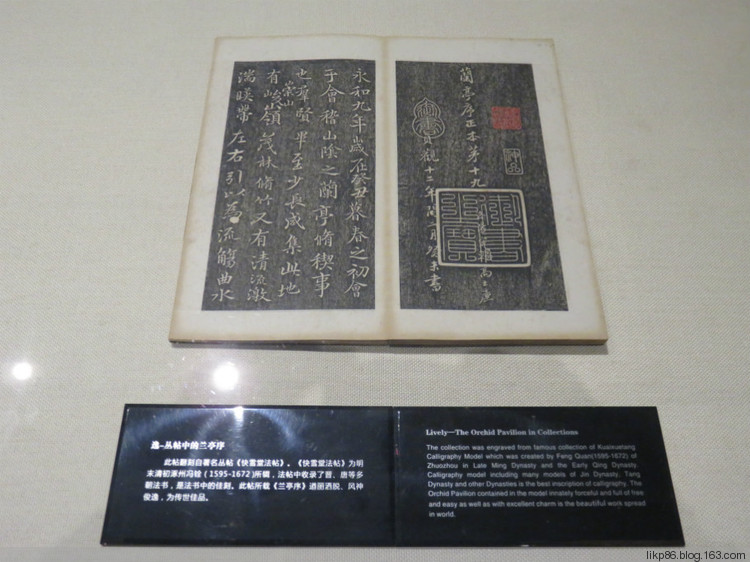 蘭亭序正本第十九
貞觀十二年閏二月
御書
神品
永和九年歲在癸丑暮春之初會
于會稽山陰之蘭亭脩稧事
也羣賢畢至少長咸集此地
有崇山峻嶺茂林脩竹又有清流激
湍暎帶左右引以為流觴曲水
逸–丛帖中的兰亭序
此帖翻刻自著名丛帖《快雪堂法帖》。《快雪堂法帖》为明
末清初涿州冯铨（1595-1672)所辑，法帖中收录了晋、唐等多
朝法书，是法书中的佳刻。此帖所载《兰亭序》遒丽洒脱、风神
俊逸，为传世佳品。
Lively—The Orchid Pavilion in Collections
The collection was engraved from famous collection of Kuaixuetang
Calligraphy Model which was created by Feng Quan(1595-1672) of
Zhuozhou in Late Ming Dynasty and the Early Qing Dynasty.
Calligraphy model including many models of Jin Dynasty, Tang
Dynasty and other Dynasties is the best inscription of calligraphy. The
Orchid Pavilion contained in the model innately forceful and full of free
and easy as well as with excellent charm is the beautiful work spread
in world.
likp86.blog.163.com